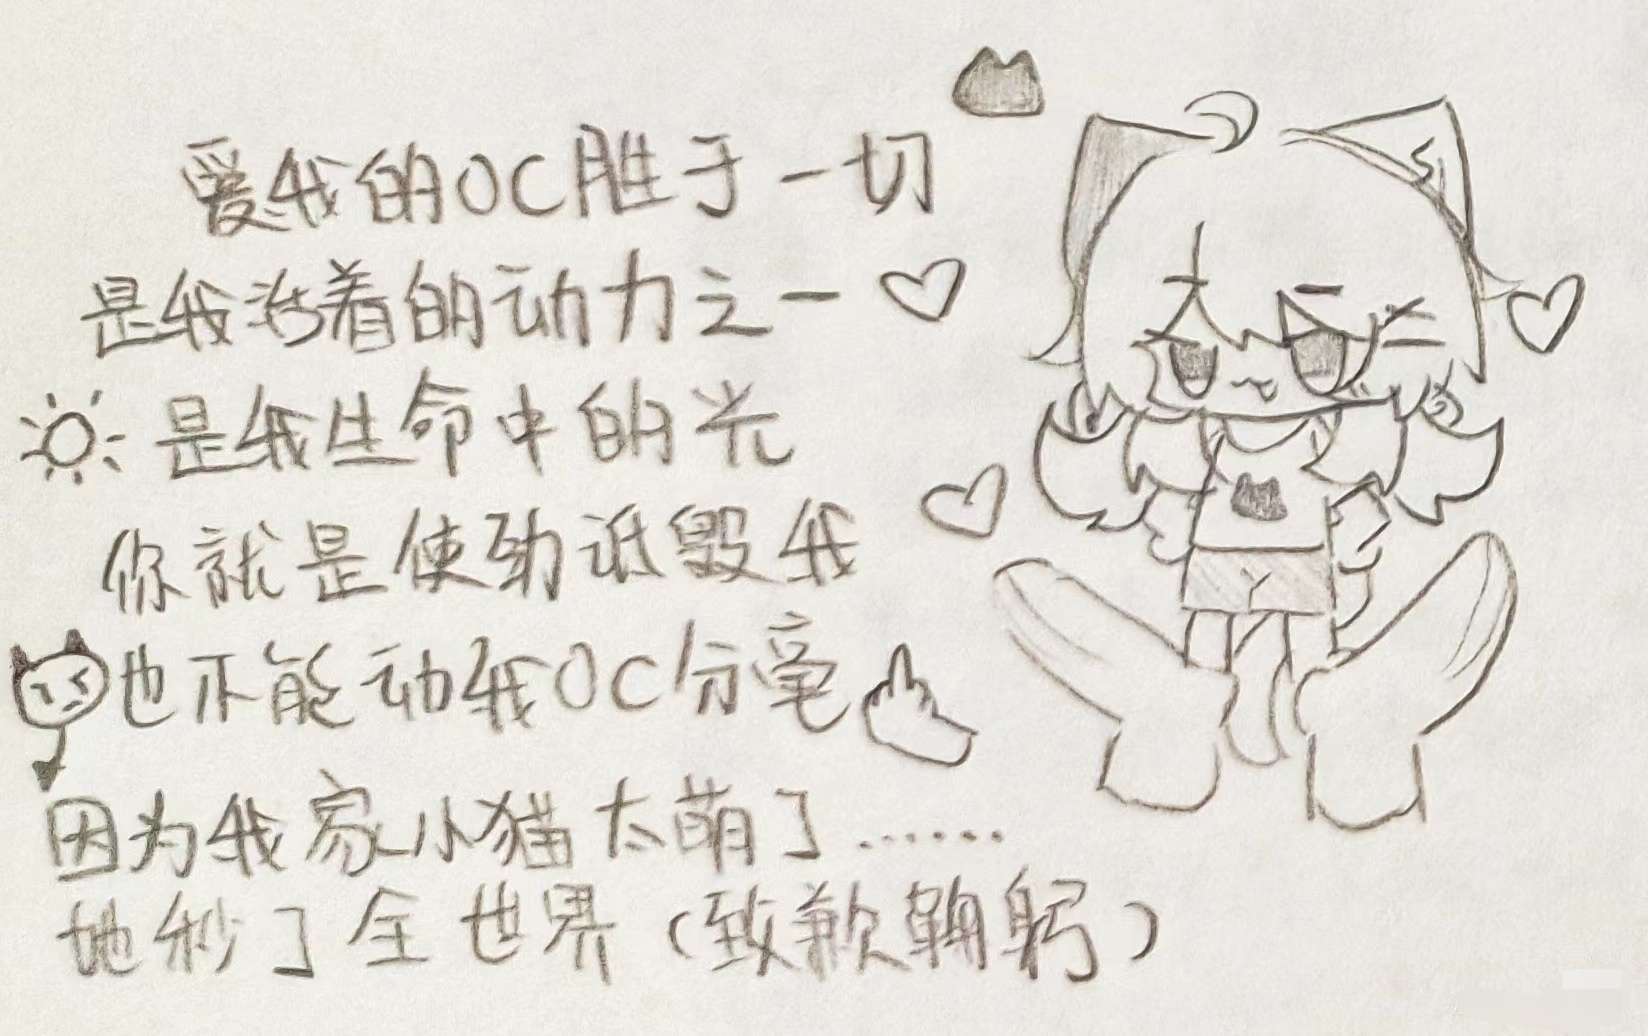 爱我的OC胜于一切
是我活着的动力之一
是我生命中的光
你就是使劲诋毁我
也不能动我OC分毫
因为我家小猫太萌了……
她秒了全世界（致歉鞠躬）